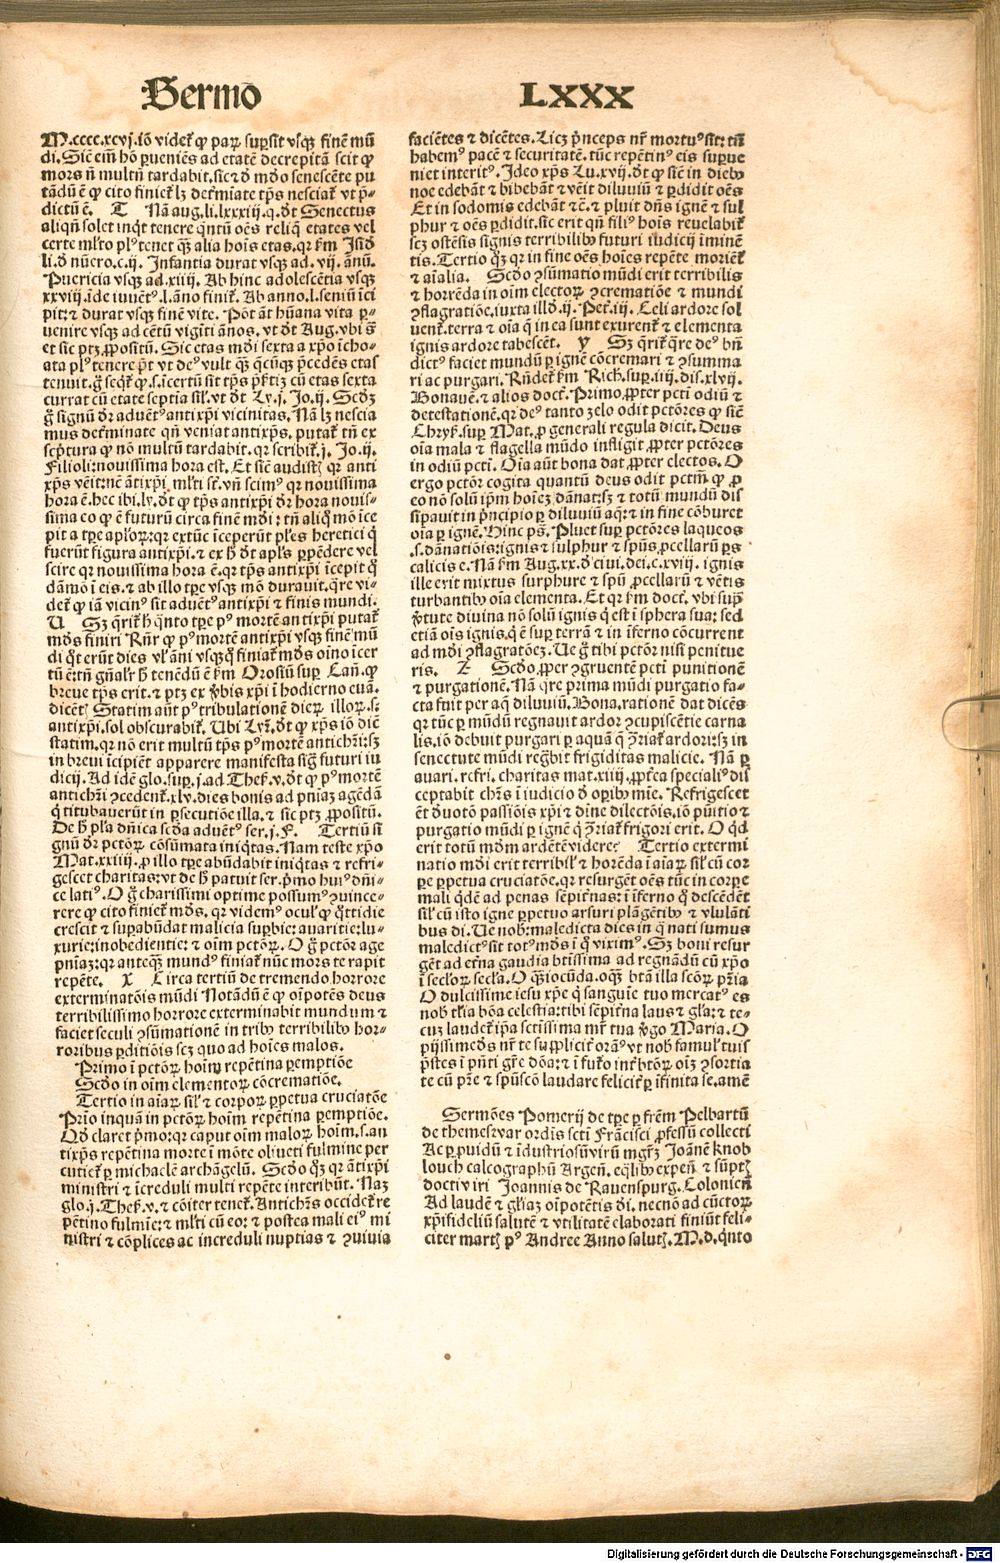 Sermō LXXX
M.cccc.xcvj.iō videt̄ ꝙ paꝝ suꝑsit vsqꝫ finē mū
di. Siē em̄ hō ꝑueniēs ad etatē decrepitā scit ꝙ
mors nō multū tardabit. sic ⁊ ď mďo senescēte pu
tādū ē ꝙ cito finiet̄ lꝫ det̄miate tp̄s nesciat̄ vt p̄⸗
dictū ē. T Nā aug. li. lxxxiij. q. dt̄ Senectus
aliqn̄ solet inqͭ tenere qͣntū oēs reliq̄ etates vel
certe ml̓to plꝰ tenet qͣꝫ alia hoīs etas. qr km̄ Isid̓
li. ď nūero. c. ij. Infantia durat vsqꝫ ad. vij. ānū.
Puericia vsqꝫ ad. xiiij. Ab hinc adolescētia vsqꝫ
xxviij. īde iuuētꝰ. l. āno finit̄. Ab anno. l. seniū ici
pit: ⁊ durat vsqꝫ finē vite. Pōt āt hūana vita ꝑ⸗
uenire vsqꝫ ad cētū vigīti ānos. vt dt̄ Aug. vbi s̄
et sic ptꝫ ꝓpositū. Sic etas mďi sexta a xp̄o īcho⸗
ata plꝰ tenere p̄t vt deꝰ vult qͣꝫ q̄cūqꝫ p̄cedēs etas
tenuit. ḡ seqt̄ ꝙ. s. īcertū sit tp̄s p̄fctiꝫ cū etas sexta
currat cū etate septia sil̓. vt dt̄ Ly. j. Jo. ij. Scďꝫ
ḡ signū dr̄ aduētꝰ antixp̄i vicinitas. Nā lꝫ nescia
mus det̄minate qn̄ veniat antixp̄s. putat̄ tn̄ ex
sc̄ptura ꝙ nō multū tardabit. qr scribit̄. j. Jo. ij.
Filioli: nouissima hora est. Et siē audistꝭ qr anti
xp̄s veit: nc̄ ātixp̄i ml̓ti st̄. vn̄ scimꝰ qr nouissima
hora ē. hec ibi. ly. dt̄ ꝙ tp̄s antixp̄i dr̄ hora nouis⸗
sima eo ꝙ ē futurū circa finē mďi: tn̄ aliq̄ mō īce
pit a tꝑe apl̓oꝝ: qr extūc īceperūt pl̓es heretici q̄
fuerūt figura antixp̄i. ⁊ ex h̄ dt̄ apl̓s ꝑpēdere vel
scire qr nouissima hora ē. qr tp̄s antixp̄i īcepit q̄
dāmō ī eis. ⁊ ab illo tꝑe vsqꝫ mō durauit. qͣre vi⸗
det̄ ꝙ iā vicinꝰ sit aduētꝰ antixp̄i ⁊ finis mundi.
U Sꝫ q̄rit̄ h̄ qͣnto tꝑe pꝰ mortē antixp̄i putat̄
mďs finiri Rn̄r ꝙ pꝰ mortē antixp̄i vsqꝫ finē mū
di q̄t erūt dies vl̓ āni vsqꝫ q̄ finiat̄ mďs oīno icer
tū ē: tn̄ gn̄al̓r h̄ tenēdū ē km̄ Orosiū suꝑ Can̄. ꝙ
breue tp̄s erit. ⁊ ptꝫ ex v̓bis xp̄i ī hodierno euā.
dicētꝭ Statim aūt pꝰ tribulationē dieꝝ illoꝝ. s:
antixp̄i. sol obscurabit̄. Ubi Lyr̄. dt̄ ꝙ xp̄s iō diē
statim. qr nō erit multū tp̄s pꝰ mortē antichri: sꝫ
in breui īcipiēt apparere manifesta sig̓ futuri iu
dicij. Ad idē glo. suꝑ. j. ad Thes̄. v. dt̄ ꝙ pꝰ mortē
antichri ꝯcedent̄. xlv. dies bonis ad pn̄iaꝫ agēdā
q̄ titubauerūt in ꝑsecutiōe illa. ⁊ sic ptꝫ ꝓpositū.
De h̄ pl̓a dn̄ica scďa aduētꝰ ser. j. F. Tertiū si
gnū dr̄ pctōꝝ cōsūmata iniqͥtas. Nam teste xp̄o
Mat. xxiiij. ꝓ illo tꝑe abūdabit iniqͥtas ⁊ refri⸗
gescet charitas: vt de h̄ patuit ser. pͥmo huiꝰ dn̄i⸗
ce latiꝰ. O ḡ charissimi optime possumꝰ ꝯuince⸗
rere ꝙ cito finiet̄ mďs. qr videmꝰ ocul̓ ꝙ q̄ttidie
crescit ⁊ suꝑabūdat malicia suꝑbie: auaritie: lu⸗
xurie: inobedientie: ⁊ oīm pctōꝝ. O ḡ pctōr age
pn̄iaꝫ: qr anteqͣꝫ mundꝰ finiat̄ nūc mors te rapit
repēte. X Circa tertiū de tremendo horrore
exterminatōis mūdi Notādū ē ꝙ oīpotēs deus
terribilissimo horrore exterminabit mundum ⁊
faciet seculi ꝯsūmationē in tribꝰ terribilibꝰ hor⸗
roribus ꝑditiōis scꝫ quo ad hoīes malos.
Primo ī pctōꝝ hoīm repētina ꝑemptiōe
Scďo in oīm elementoꝝ cōcrematiōe.
Tertio in aīaꝝ sil̓ ⁊ corpoꝝ ꝑpetua cruciatōe
Prīo inquā in pctōꝝ hoīm repētina ꝑemptiōe.
Qď claret pͥmo: qr caput oīm maloꝝ hoīm. s. an
tixp̄s repētina morte ī mōte oliueti fulmine per
cutiet̄ ꝑ michaelē archāgelū. Scďo qͦꝫ qr ātixp̄i
ministri ⁊ īcreduli multi repēte interibūt. Naꝫ
glo. j. Thes̄. v. ⁊ cōiter tenet̄. Antichrs̄ occidet̄ re
pētino fulmīe: ⁊ ml̓ti cū eo: ⁊ postea mali eiꝰ mi
nistri ⁊ cōplices ac increduli nuptias ⁊ ꝯuiuia
faciētes ⁊ dicētes. Licꝫ pͥnceps nr̄ mortuꝰ sit: tn̄
habemꝰ pacē ⁊ securitatē. tūc repētinꝰ eis suꝑue
niet interitꝰ. Ideo xp̄s Lu. xvij. dt̄ ꝙ siē in diebꝰ
noe edebāt ⁊ bibebāt ⁊ vēit diluuiū ⁊ ꝑdidit oēs
Et in sodomis edebāt ⁊ē. ⁊ pluit dn̄s ignē ⁊ sul
phur ⁊ oēs ꝑdidit. sic erit qn̄ filiꝰ hoīs reuelabit̄
scꝫ ostēsis signis terribilibꝰ futuri iudicij īminē
tis. Tertio qͦꝫ qr in fine oēs hoīes repēte moriēt̄
⁊ aīalia. Scďo ꝯsūmatio mūdi erit terribilis
⁊ horrēda in oīm electoꝝ ꝯcrematiōe ⁊ mundi
ꝯflagratiōe. iuxta illď. ij. Pet̄. iij. Celi ardore sol
uent̄. terra ⁊ oīa q̄ in ea sunt exurent̄ ⁊ elementa
ignis ardore tabescēt. Y Sꝫ q̄rit̄ qͣre deꝰ bn̄
dictꝰ faciet mundū ꝑ ignē cōcremari ⁊ ꝯsumma
ri ac purgari. Rn̄det̄ km̄ Rich. suꝑ. iiij. dis. xlvij.
Bonauē. ⁊ alios doct̄. Primo. ꝓpter pcti odiū ⁊
detestationē. qr deꝰ tanto zelo odit pctōres ꝙ siē
Chrys̄. suꝑ Mat. ꝓ generali regula dicit. Deus
oīa mala ⁊ flagella mūdo infligit ꝓpter pctōres
in odiū pcti. Oīa aūt bona dat ꝓpter electos. O
ergo pctōr cogita quantū deus odit pctm̄ ꝙ ꝓ
eo nō solū ip̄m hoīeꝫ dānat: sꝫ ⁊ totū mundū dis
sipauit in pͥncipio ꝑ diluuiū aqͣꝫ: ⁊ in fine cōburet
oīa ꝑ ignē. Hinc ps̄. Pluet suꝑ pctōres laqueos
.s. dānatiōis: ignis ⁊ sulphur ⁊ spūs ꝓcellarū ꝑs
calicis e. Nā km̄ Aug. xx. ď ciui. dei. c. xviij. ignis
ille erit mixtus surphure ⁊ spū ꝓcellarū ⁊ vētis
turbantibꝰ oīa elementa. Et qr km̄ doct̄. vbi supͣ
v̓tute diuina nō solū ignis q̄ est ī sphera sua: sed
etiā oīs ignis. q̄ ē suꝑ terrā ⁊ in īferno cōcurrent
ad mďi ꝯflagratōeꝫ. Ue ḡ tibi pctōr nisi penitue
ris. Z Scďo. ꝓper ꝯgruentē pcti punitionē
⁊ purgationē. Nā qͣre prima mūdi purgatio fa⸗
cta fuit per aqͣ diluuiū. Bona. rationē dat dicēs
qr tūc ꝑ mūdū regnauit ardor ꝯcupiscētie carna
lis. iō debuit purgari ꝑ aquā q̄ ꝯ̓riat̄ ardori: sꝫ in
senectute mūdi reg̓bit frigiditas malicie. Nā ꝑ
auari. refri. charitas mat. xiiij. ꝓpt̄ea specialiꝰ dis
ceptabit chrs̄ ī iudicio ď oꝑibꝰ mīe. Refrigescet
ēt ďuotō passiōis xp̄i ⁊ diīne dilectōis. iō pūitio ⁊
purgatio mūdi ꝑ ignē q̄ ꝯ̓riat̄ frigori erit. O qͥd
erit totū mďm ardētē videre? Tertio extermi
natio mďi erit terribil̓ ⁊ horēda ī aīaꝝ sil̓ cū cor
ꝑe ꝑpetua cruciatōe. qr resurgēt oēs tūc in corꝑe
mali qͥdē ad penas sēpiͭnas: ī īferno q̄ descēdēt
sil̓ cū isto igne ꝑpetuo arsuri plāgētibꝰ ⁊ vlulāti
bus di. Ue nob̓: maledicta dies in q̄ nati sumus
maledictꝰ sit totꝰ mďs ī q̄ viximꝰ. Sꝫ boni resur
gēt ad et̄na gaudia bt̄issima ad regnādū cū xp̄o
ī secl̓oꝝ secl̓a. O qͣꝫ iocūda. oqͣꝫ btā illa scōꝝ pr̄ia
O dulcissime iesu xp̄e q̄ sanguīe tuo mercatꝰ es
nob̓ tl̓ia bōa celestia: tibi sēpit̄na laus ⁊ gl̓a: ⁊ te⸗
cuꝫ laudet̄ ip̄a sctissima mr̄ tua v̓go Maria. O
pijssime dn̄s nr̄ te supplicit̄ orāꝰ vt nob̓ famul̓ tuis
p̄stes ī pn̄ti gr̄e dōa: ⁊ ī fut̓o int̓ hc̄toꝝ oīꝫ ꝯsortia
te cū pr̄e ⁊ spūscō laudare felicit̄ ꝑ ifinita se. amē
Sermōes Pomerij de tꝑe ꝑ frēm Pelbartū
de themeswar ordīs scti Frācisci ꝓfessū collecti
Ac ꝑ puidū ⁊ īdustriosū virū mgr̄ꝫ Joānē knob
louch calcographū Argen̄. eqͥlibꝰ expen̄. ⁊ sūptꝭ
docti viri Joannis de Rauenspurg. Colonien̄
Ad laudē ⁊ gl̓iaꝫ oīpotētis di. necnō ad cūctoꝝ
xp̄ifideliū salutē ⁊ vtilitatē elaborati finiūt feli⸗
citer martꝭ pꝰ Andree Anno salutꝭ. M. d. qͥnto
Digitalisierung gefördert durch die Deutsche Forschungsgemeinschaft - DFG